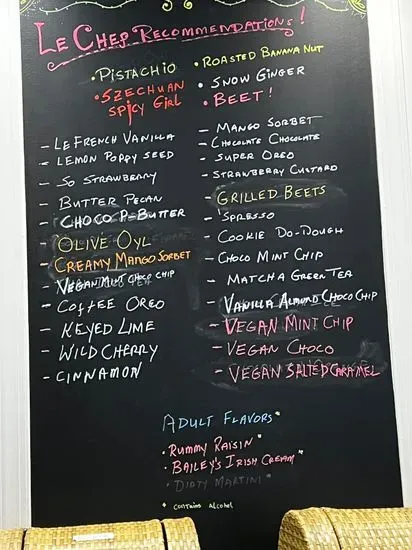 Le Chef Recommendations!
• Pistachio
• Szechuan
Spicy Girl
• Roasted Banana Nut
• Snow Ginger
• Beet!
– Le French Vanilla
– Lemon Poppy Seed
– So Strawberry
– Butter Pecan
– Choco P-Butter
– Olive Oyl
– Creamy Mango Sorbet
– Vegan Mint Choco Chip
– Coffee Oreo
– Keyed Lime
– Wild Cherry
– Cinnamon
– Mango Sorbet
– Chocolate Chocolate
– Super Oreo
– Strawberry Custard
– Grilled Beets
– 'Spresso
– Cookie Do-Dough
– Choco Mint Chip
– Matcha Green Tea
– Vanilla Almond Choco Chip
– Vegan Mint Chip
– Vegan Choco
– Vegan Salted Caramel
Adult Flavors*
• Rummy Raisin*
• Bailey's Irish Cream*
• Dirty Martini*
* contains alcohol